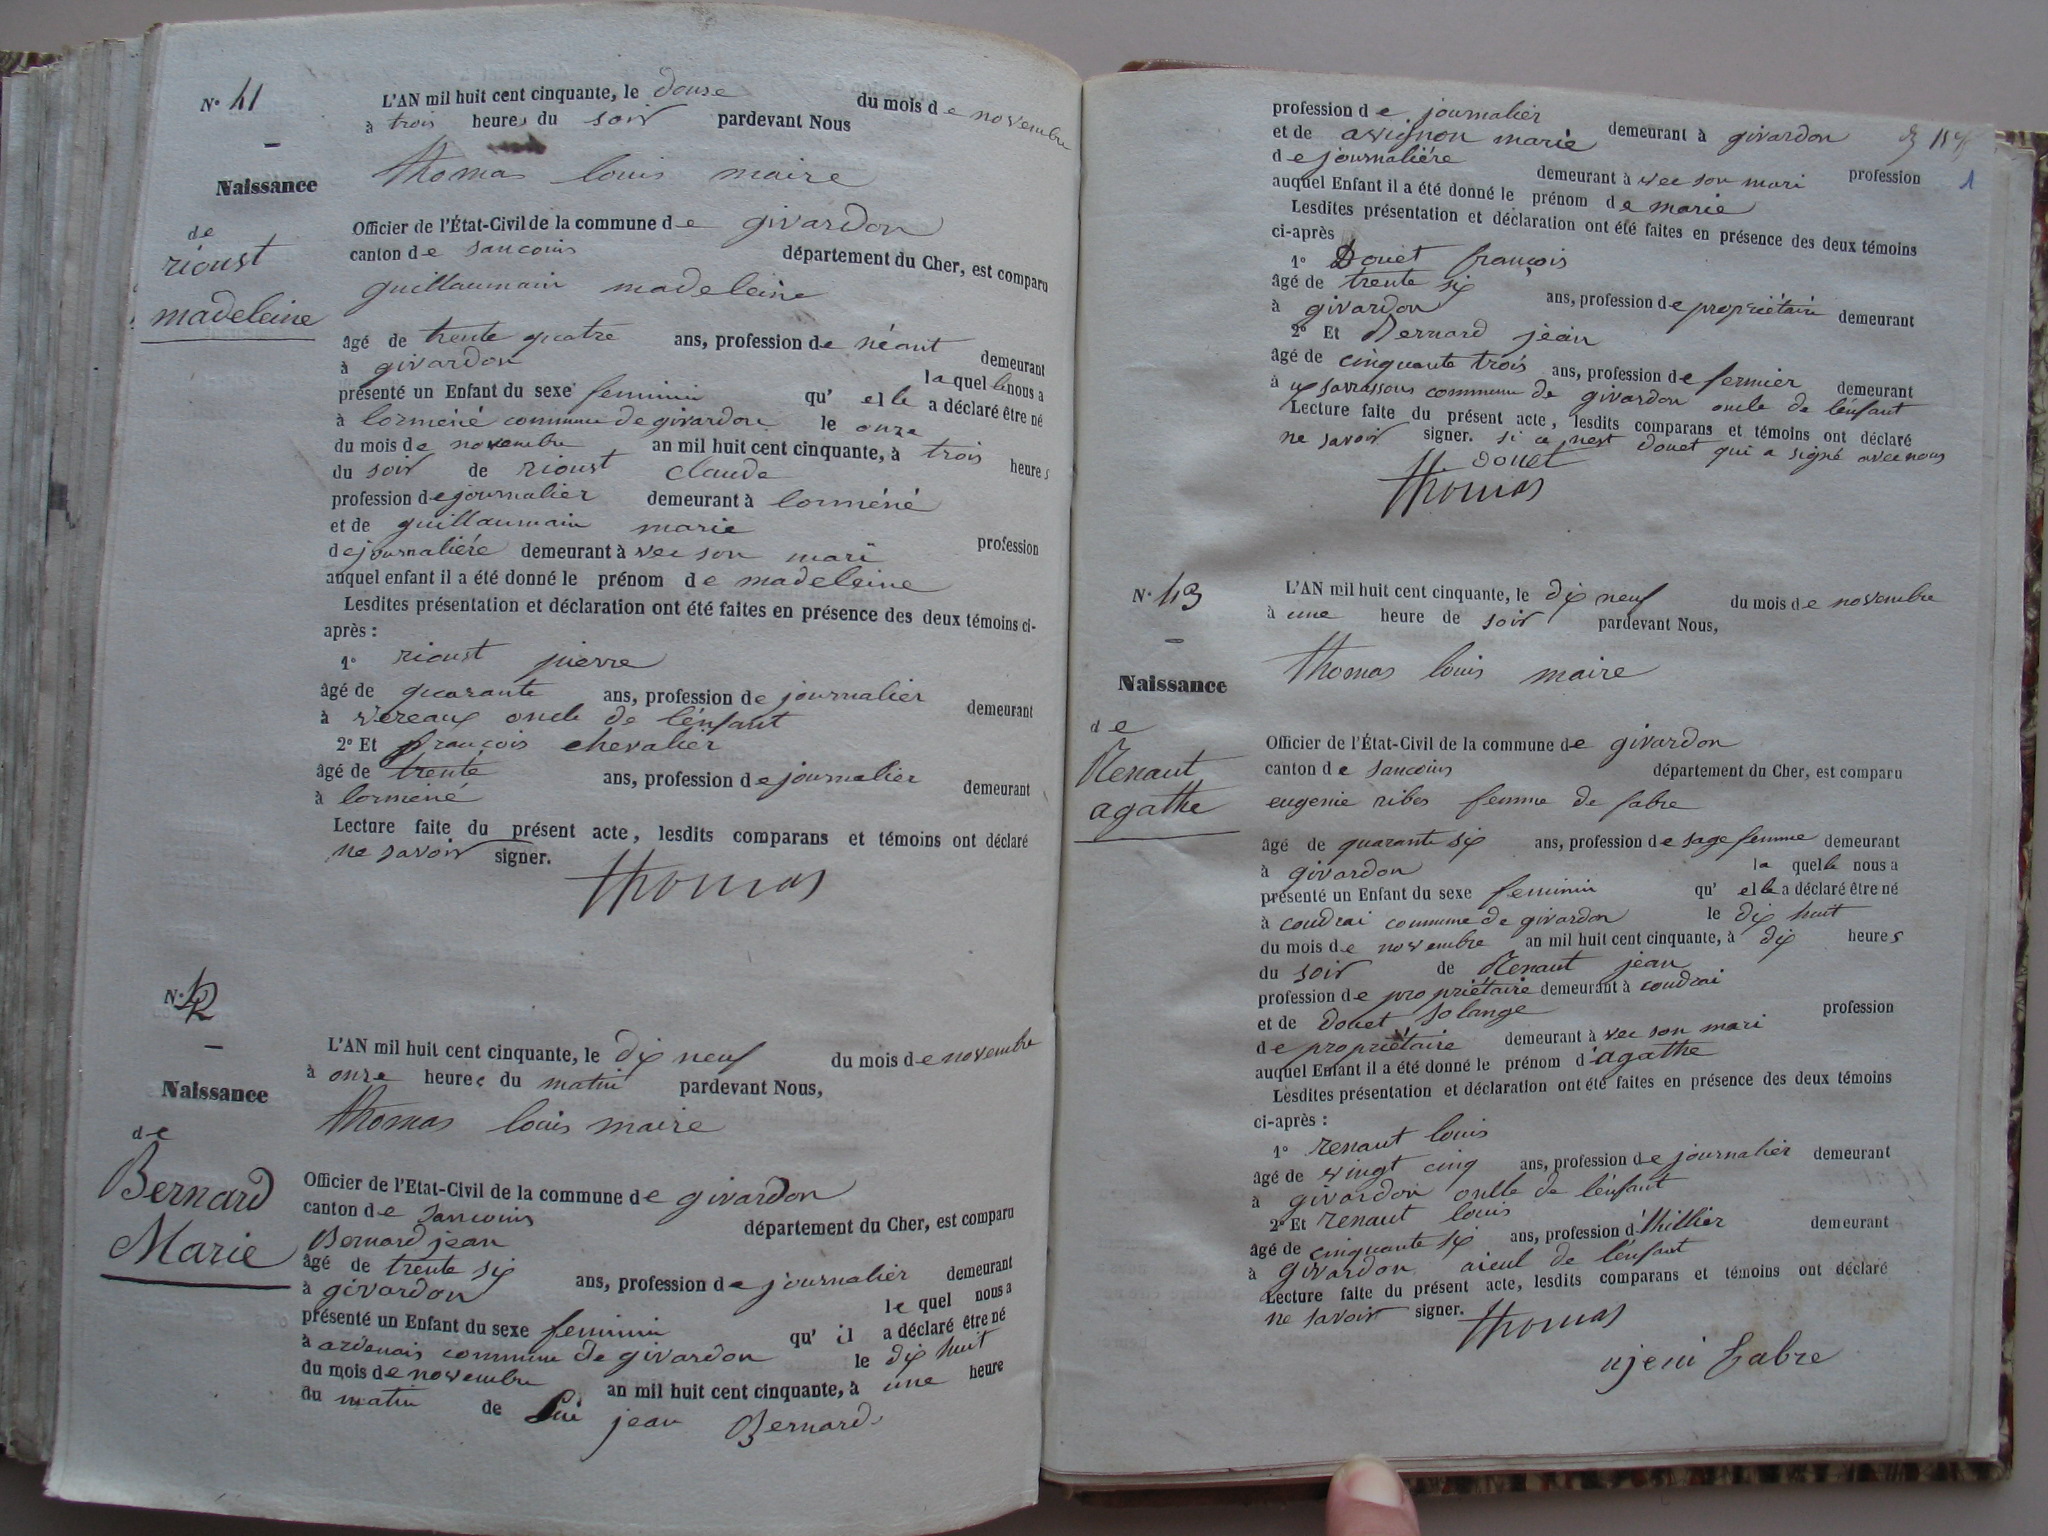 N° 41
Naissance
de
rioust
madeleine
L'AN mil huit cent cinquante, le douse du mois de novembre
à trois heures du soir pardevant Nous
thomas louis maire
Officier de l'État-Civil de la commune de givardon
canton de sancoins département du Cher, est comparu
guillaumain madeleine
âgé de trente quatre ans, profession de néant demeurant
à givardon laquelle nous a
présenté un Enfant du sexe feminin qu' elle a déclaré être né
à lorméné commune de givardon le onze
du mois de novembre an mil huit cent cinquante, à trois heures
du soir de rioust claude
profession de journalier demeurant à lorméné
et de guillaumain marie profession
de journaliére demeurant à vec son mari
auquel enfant il a été donné le prénom de madeleine
Lesdites présentation et déclaration ont été faites en présence des deux témoins ci-
après :
1° rioust pierre
âgé de quarante ans, profession de journalier demeurant
à vereaux oncle de l'énfant
2° Et françois chevalier
âgé de trente ans, profession de journalier demeurant
à lorméné
Lecture faite du présent acte, lesdits comparans et témoins ont déclaré
ne savoir signer.
thomas
N° 42
Naissance
de
Bernard
Marie
L'AN mil huit cent cinquante, le dix neuf du mois de novembre
à onze heures du matin pardevant Nous,
thomas louis maire
Officier de l'Etat-Civil de la commune de givardon
canton de sancoins département du Cher, est comparu
Bernard jean
âgé de trente six ans, profession de journalier demeurant
à givardon le quel nous a
présenté un Enfant du sexe feminin qu' il a déclaré être né
à ardenais commune de givardon le dix huit
du mois de novembre an mil huit cent cinquante, à une heure
du matin de lui jean Bernard
profession de journalier demeurant à givardon
et de avignon marie profession
de journaliére demeurant à vec son mari
auquel Enfant il a été donné le prénom de marie
Lesdites présentation et déclaration ont été faites en présence des deux témoins
ci-après
1° Douet françois
âgé de trente six ans, profession de propriétaire demeurant
à givardon
2° Et Bernard jean
âgé de cinquante trois ans, profession de fermier demeurant
à savrassous commune de givardon oncle de l'énfant
Lecture faite du présent acte, lesdits comparans et témoins ont déclaré
ne savoir signer. si ce nest Douet qui a signé avec nous
Douet
thomas
1
N° 43
Naissance
de
Renaut
agathe
L'AN mil huit cent cinquante, le dix neuf du mois de novembre
à une heure de soir pardevant Nous,
thomas louis maire
Officier de l'État-Civil de la commune de givardon
canton de sancoins département du Cher, est comparu
eugenie ribes femme de fabre
âgé de quarante six ans, profession de sage femme demeurant
à givardon la quelle nous a
présenté un Enfant du sexe feminin qu' elle a déclaré être né
à coudrai commune de givardon le dix huit
du mois de novembre an mil huit cent cinquante, à dix heures
du soir de Renaut jean
profession de propriétaire demeurant à coudrai
et de Douet solange profession
de propriétaire demeurant à vec son mari
auquel Enfant il a été donné le prénom d'agathe
Lesdites présentation et déclaration ont été faites en présence des deux témoins
ci-après :
1° renaut louis
âgé de vingt cinq ans, profession de journalier demeurant
à givardon oncle de l'énfant
2° Et renaut louis
âgé de cinquante six ans, profession d'thillier demeurant
à givardon aieul de l'énfant
Lecture faite du présent acte, lesdits comparans et témoins ont déclaré
ne savoir signer.
thomas
ujeni fabre